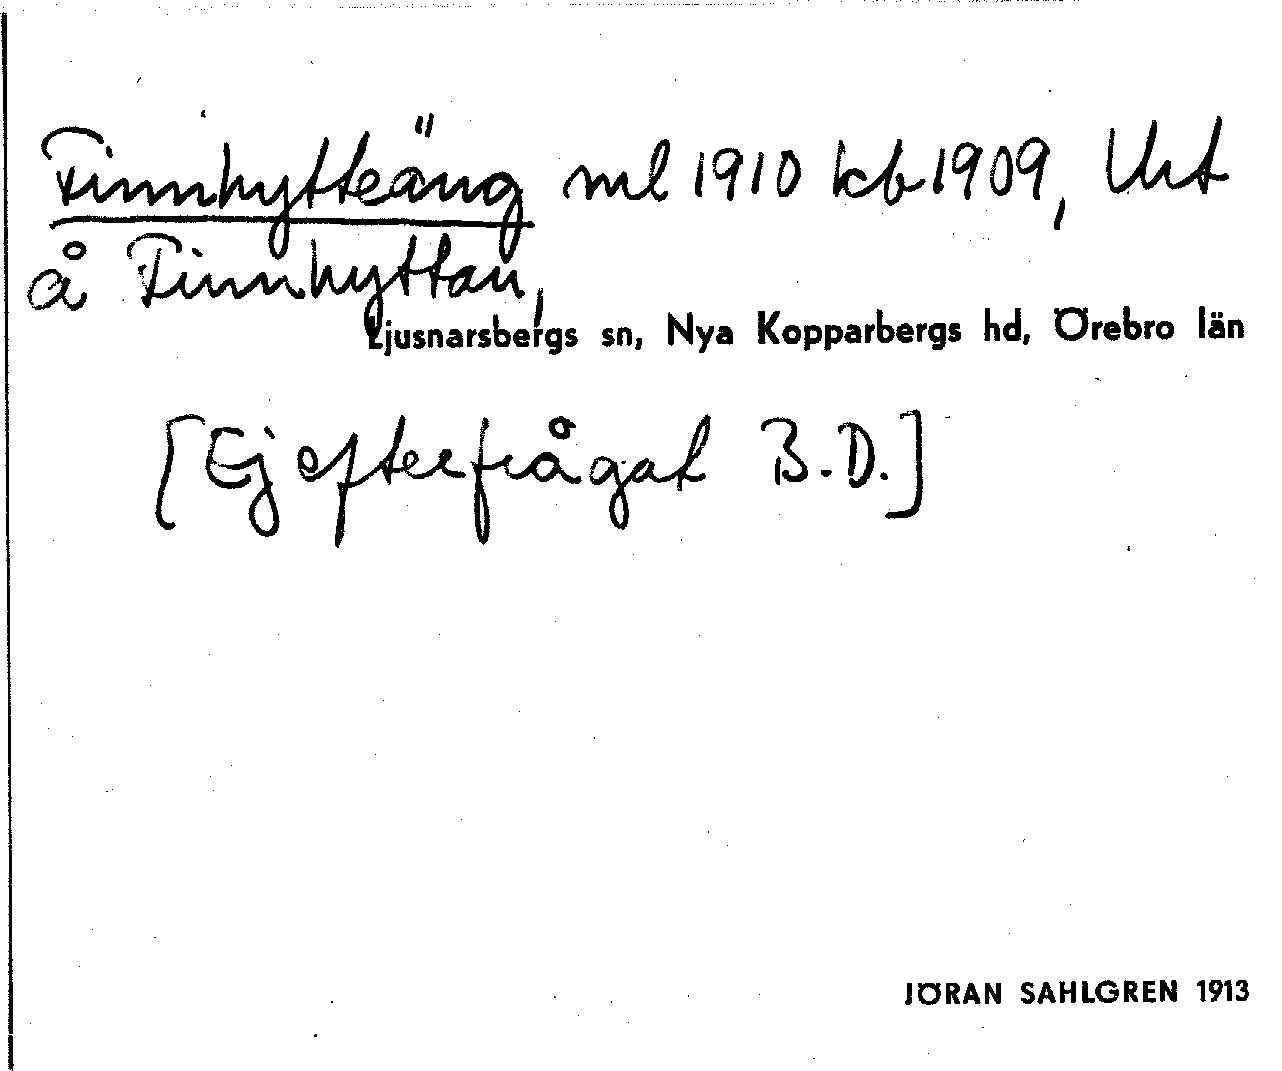 Finnhytteäng ml 1910 kb 1909, Urt
å Finnhyttan,
Ljusnarsbergs sn, Nya Kopparbergs hd, Örebro län
[Ej efterfrågat B.D.]
JÖRAN SAHLGREN 1913